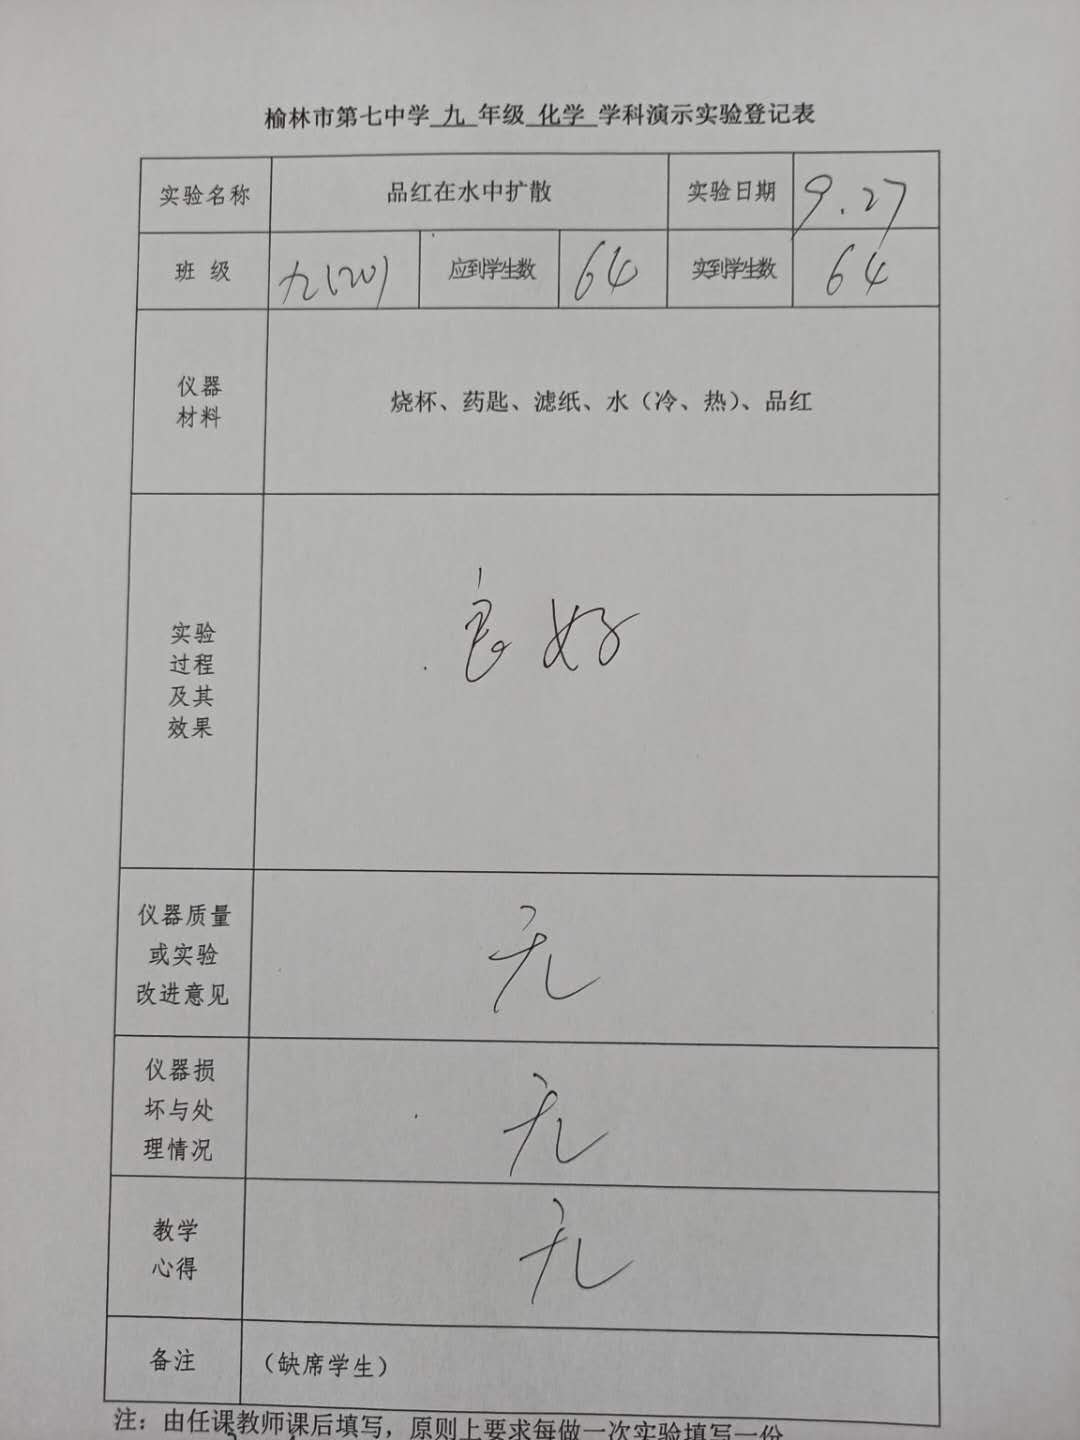 榆林市第七中学 九 年级 化学 学科演示实验登记表
实验名称 品红在水中扩散 实验日期 9.27
班 级 九(20) 应到学生数 64 实到学生数 64
仪器
材料
烧杯、药匙、滤纸、水（冷、热）、品红
实验
过程
及其
效果
良好
仪器质量
或实验
改进意见
无
仪器损
坏与处
理情况
无
教学
心得
无
备注 （缺席学生）
注：由任课教师课后填写，原则上要求每做一次实验填写一份